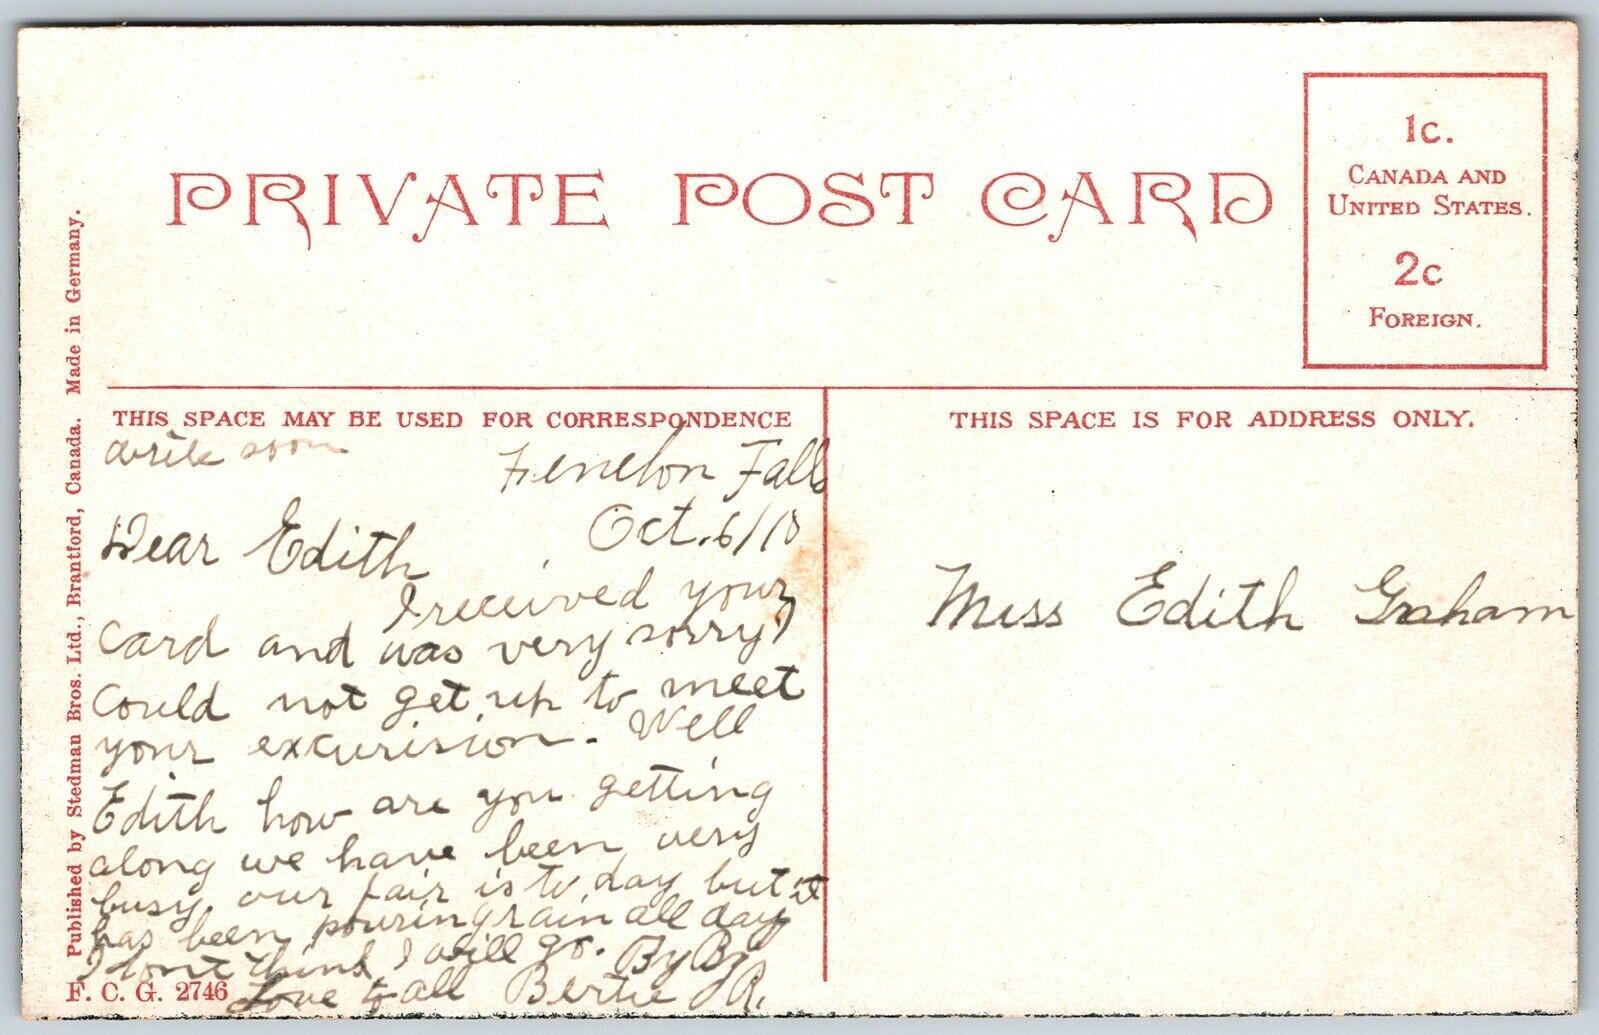 PRIVATE POST CARD
1c.
CANADA AND
UNITED STATES.
2c
FOREIGN.
Published by Stedman Bros. Ltd., Brantford, Canada. Made in Germany.
THIS SPACE MAY BE USED FOR CORRESPONDENCE
write soon
Fenelon Falls
Oct. 6/10
Dear Edith
I received your
card and was very sorry I
could not get up to meet
your excurision. Well
Edith how are you getting
along we have been very
busy. our fair is to day but it
has been pouring rain all day
I dont think I will go. By By
Love to all Bertie
F. C. G. 2746
THIS SPACE IS FOR ADDRESS ONLY.
Miss Edith Graham